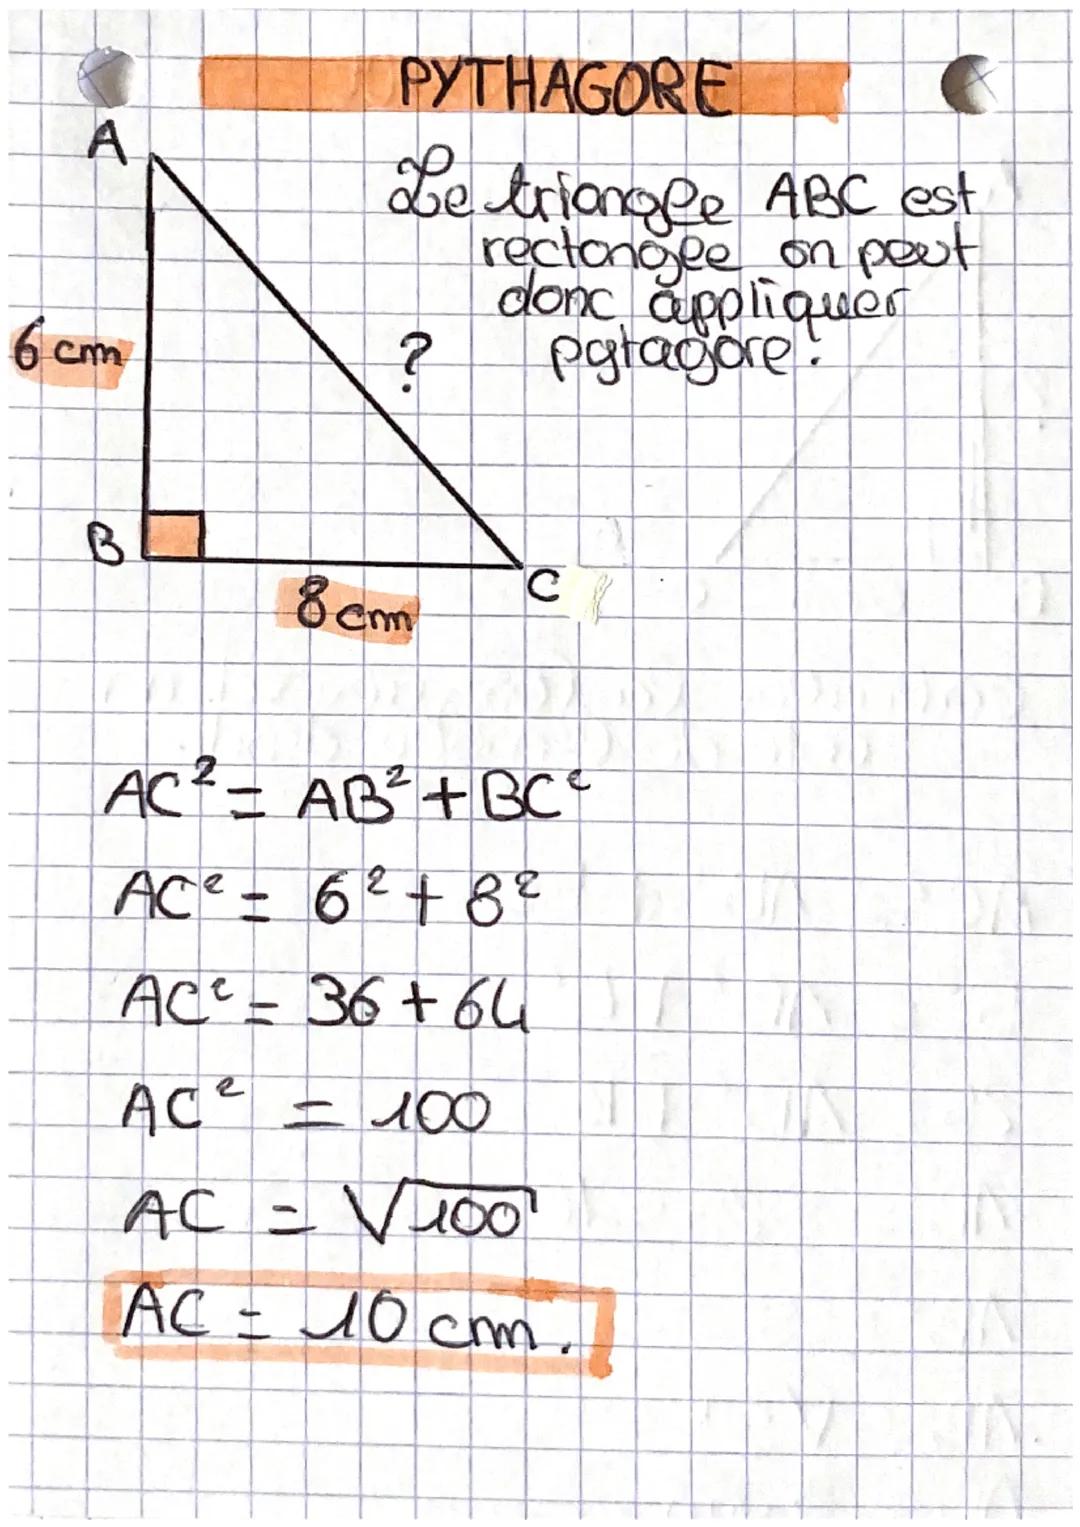 PYTHAGORE
A
Le triangle ABC est
rectangle on peut
donc appliquer
pytagore!
6 cm
?
B
C
8 cm
AC² = AB² + BC²
AC² = 6² + 8²
AC² = 36 + 64
AC² = 100
AC = √100
AC = 10 cm.